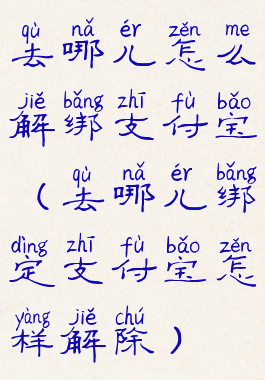 qù nǎ ér zěn me
去哪儿怎么
jiě bǎng zhī fù bǎo
解绑支付宝
qù nǎ ér bǎng
（去哪儿绑
dìng zhī fù bǎo zěn
定支付宝怎
yàng jiě chú
样解除）